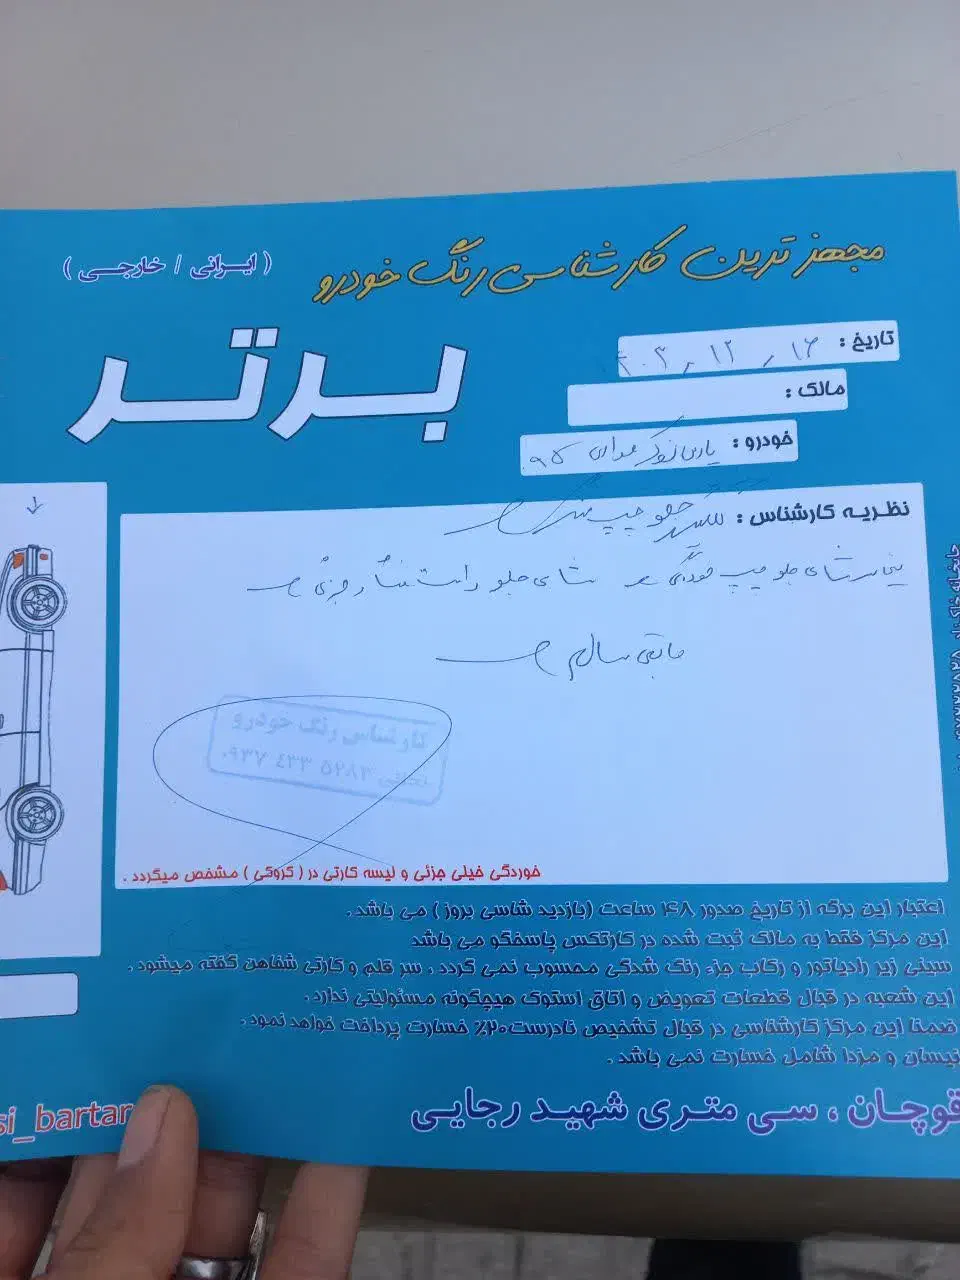 مجهز ترین کارشناسی رنگ خودرو
( ایرانی / خارجی )
برتر
تاریخ : ۱۶ , ۱۲ , ۴۰۳
مالک :
خودرو : پارس نوک مدادی ۹۵
نظریه کارشناس : گلگیر جلو چپ رنگ
شاسی جلو چپ خوردگی شاسی جلو راست جزئی
مابقی سالم
کارشناس رنگ خودرو
۰۹۳۷ ۴۳۳ ۵۲۸۳
خوردگی خیلی جزئی و لیسه کارتی در ( کروکی ) مشخص میگردد .
اعتبار این برگه از تاریخ صدور ۴۸ ساعت (بازدید شاسی بروز ) می باشد .
این مرکز فقط به مالک ثبت شده در کارتکس پاسخگو می باشد
سینی زیر رادیاتور و رکاب جزء رنگ شدگی محسوب نمی گردد ، سر قلم و کارتی شفاهن گفته میشود .
این شعبه در قبال قطعات تعویض و اتاق استوک هیچگونه مسئولیتی ندارد .
ضمنا این مرکز کارشناسی در قبال تشخیص نادرست ۲۰٪ خسارت پرداخت خواهد نمود .
نیسان و مزدا شامل خسارت نمی باشد .
قوچان ، سی متری شهید رجایی
si_bartar